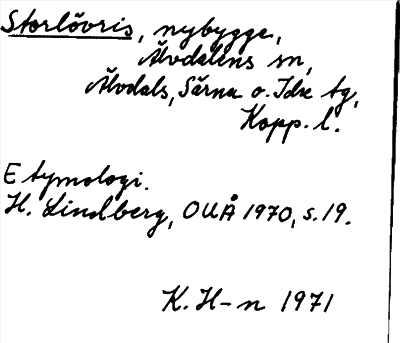 Storlövris, nybygge,
Älvdalens sn,
Älvdals, Särna o. Idre tg,
Kopp. l.
Etymologi.
H. Lindberg, OUÅ 1970, s. 19.
K. H-n 1971